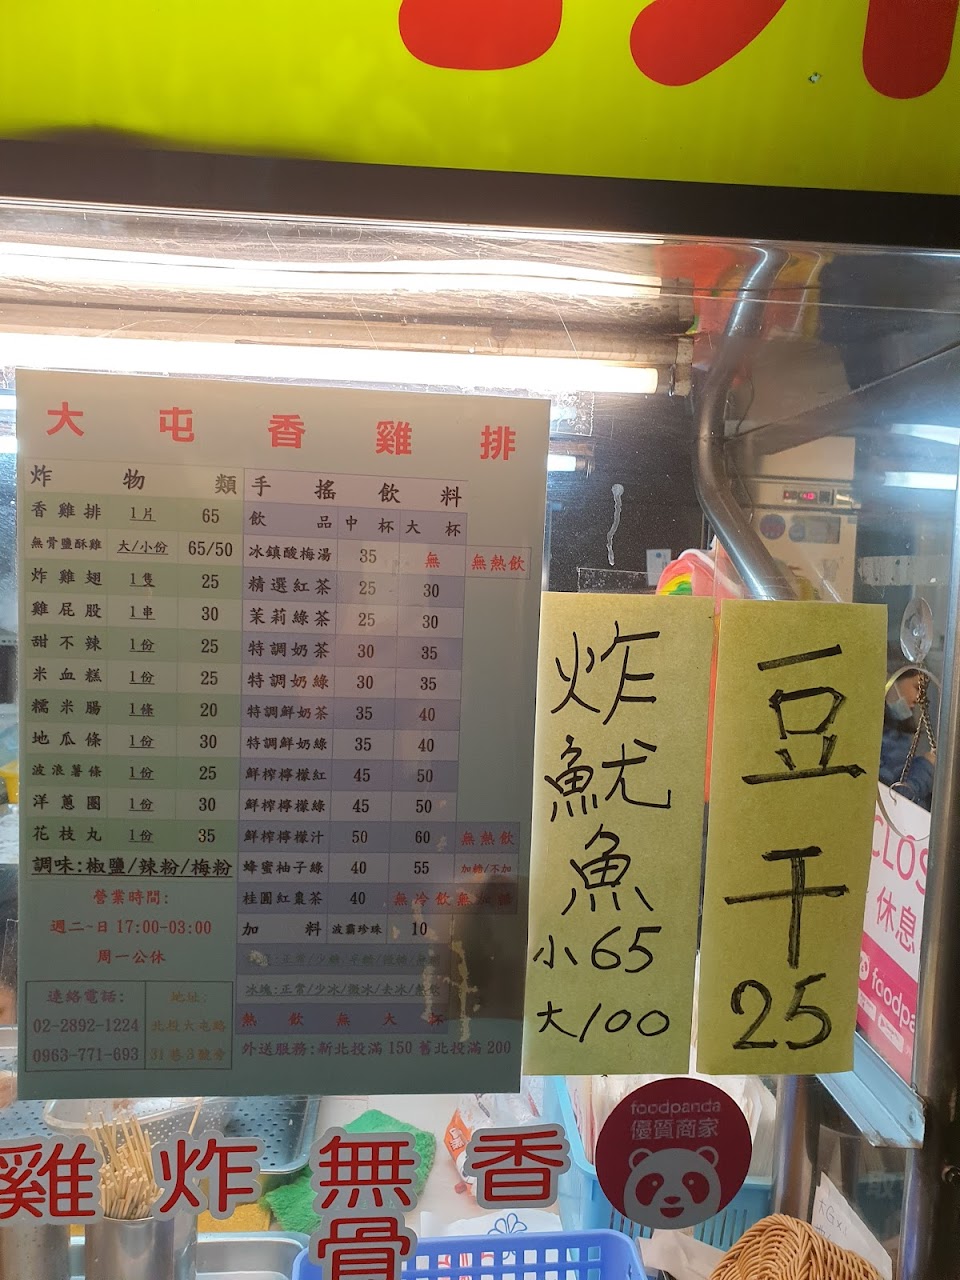 大屯香雞排
炸物類
香雞排 1片 65
無骨鹽酥雞 大/小份 65/50
炸雞翅 1隻 25
雞屁股 1串 30
甜不辣 1份 25
米血糕 1份 25
糯米腸 1條 20
地瓜條 1份 30
波浪薯條 1份 25
洋蔥圈 1份 30
花枝丸 1份 35
調味:椒鹽/辣粉/梅粉
營業時間:
週二~日 17:00-03:00
周一公休
連絡電話:
02-2892-1224
0963-771-693
地址:
北投大屯路
31巷3號旁
手搖飲料
飲品 中杯 大杯
冰鎮酸梅湯 35 無 無熱飲
精選紅茶 25 30
茉莉綠茶 25 30
特調奶茶 30 35
特調奶綠 30 35
特調鮮奶茶 35 40
特調鮮奶綠 35 40
鮮榨檸檬紅 45 50
鮮榨檸檬綠 45 50
鮮榨檸檬汁 50 60 無熱飲
蜂蜜柚子綠 40 55 加糖/不加
桂圓紅棗茶 40 無冷飲
加料 波霸珍珠 10
正常/少糖/半糖/微糖/無糖
冰塊:正常/少冰/微冰/去冰/熱飲
熱飲無大杯
外送服務:新北投滿150舊北投滿200
炸魷魚
小65
大100
豆干
25
CLOS
休息
foodpa
foodpanda
優質商家
雞炸無骨香